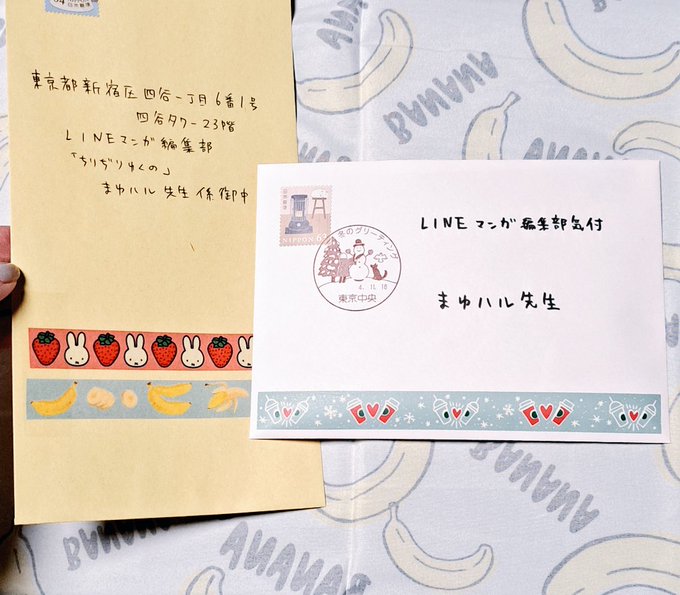 東京都新宿区四谷一丁目6番1号
四谷タワー23階
LINEマンガ編集部
「ちりぢりゆくの」
まゆハル先生係御中
日本郵便
日本郵便
NIPPON 63
冬のグリーティング
4.11.18
東京中央
LINEマンガ編集部気付
まゆハル先生
BANANA
BANANA
BANANA
BANANA
BANANA